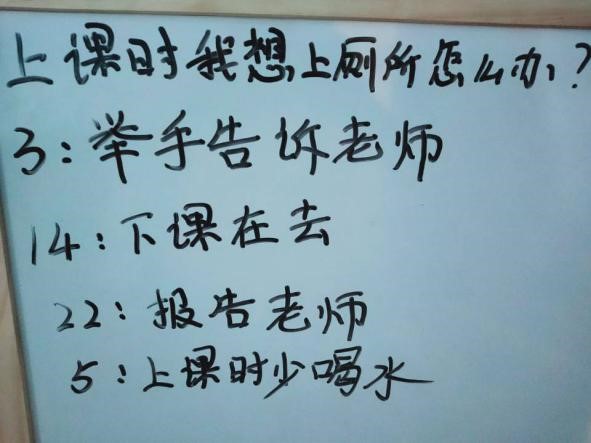 上课时我想上厕所怎么办?
3:举手告诉老师
14:下课在去
22:报告老师
5:上课时少喝水